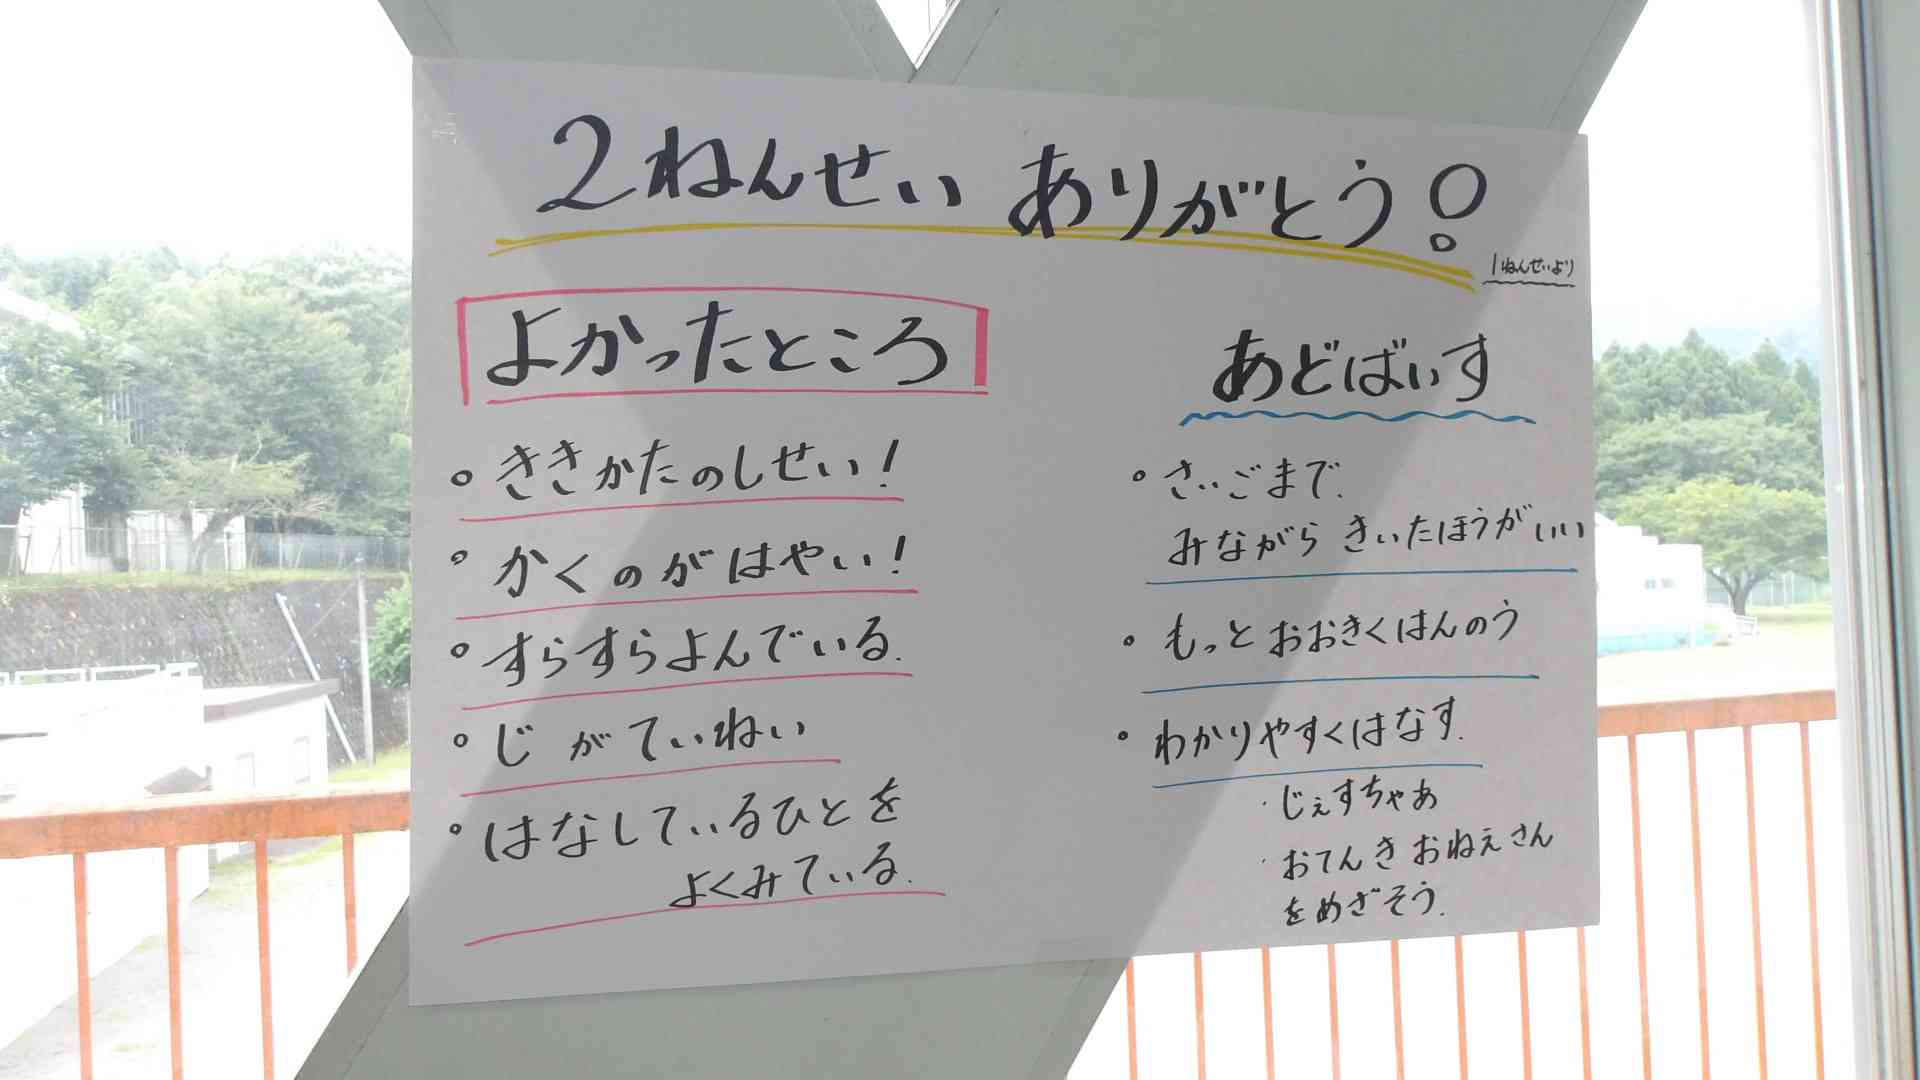 2ねんせい ありがとう!
1ねんせいより
よかったところ
・ききかたのしせい!
・かくのがはやい!
・すらすらよんでいる.
・じがていねい
・はなしているひとを
よくみている.
あどばいす
・さいごまで.
みながら きいたほうがいい
・もっとおおきくはんのう
・わかりやすくはなす.
・じぇすちゃあ
・おてんきおねえさん
をめざそう.